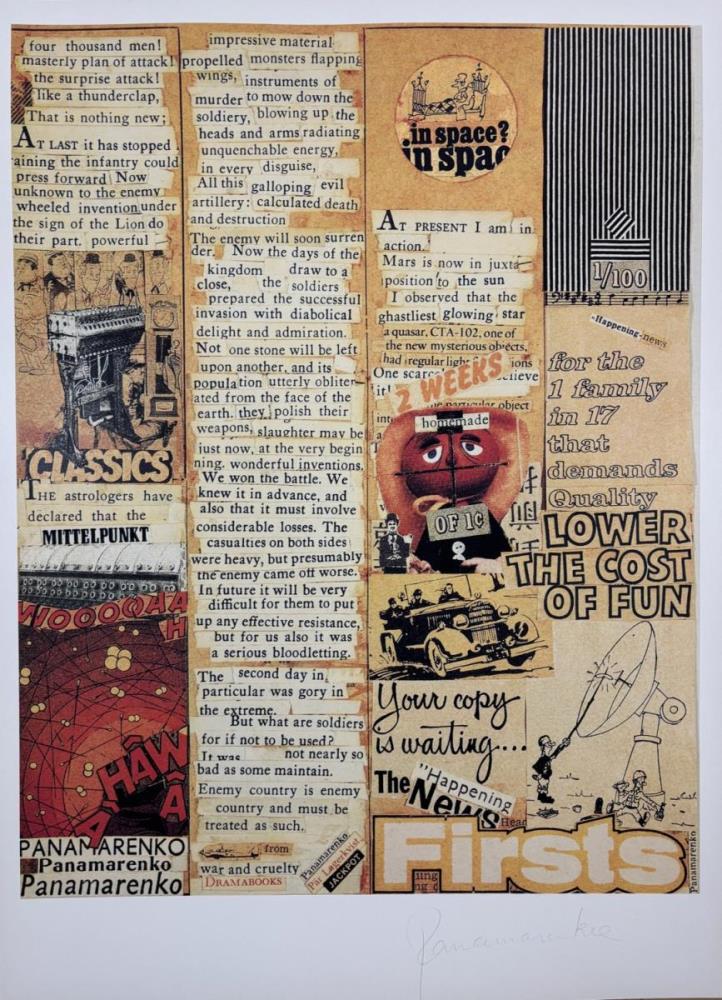 four thousand men!
masterly plan of attack!
the surprise attack!
like a thunderclap,
That is nothing new;
AT LAST it has stopped
raining the infantry could
press forward Now
unknown to the enemy
wheeled invention under
the sign of the Lion do
their part. powerful
CLASSICS
THE astrologers have
declared that the
MITTELPUNKT
WOOOQHA
H
HÂW
Â
PANAMARENKO
Panamarenko
Panamarenko
impressive material
propelled monsters flapping
wings, instruments of
murder to mow down the
soldiery, blowing up the
heads and arms radiating
unquenchable energy,
in every disguise,
All this galloping evil
artillery: calculated death
and destruction
The enemy will soon surren
der. Now the days of the
kingdom draw to a
close, the soldiers
prepared the successful
invasion with diabolical
delight and admiration.
Not one stone will be left
upon another, and its
population utterly obliter
ated from the face of the
earth. they polish their
weapons, slaughter may be
just now, at the very begin
ning. wonderful inventions.
We won the battle. We
knew it in advance, and
also that it must involve
considerable losses. The
casualties on both sides
were heavy, but presumably
the enemy came off worse.
In future it will be very
difficult for them to put
up any effective resistance,
but for us also it was
a serious bloodletting.
The second day in
particular was gory in
the extreme.
But what are soldiers
for if not to be used?
It was not nearly so
bad as some maintain.
Enemy country is enemy
country and must be
treated as such.
from
war and cruelty
DRAMABOOKS
Panamarenko
Par Lagerkvist
JACKPOT
in space?
in spac
AT PRESENT I am in
action.
Mars is now in juxta
position to the sun
I observed that the
ghastliest glowing star
a quasar, CTA-102, one of
the new mysterious objects,
had regular light ions
One scarce elieve
it!
2 WEEKS
particular object
homemade
OF 1¢
Your copy
is waiting...
The
"Happening
News
Head
Firsts
Panamarenko
1/100
-Happening-news
for the
1 family
in 17
that
demands
Quality
LOWER
THE COST
OF FUN
Panamarenko